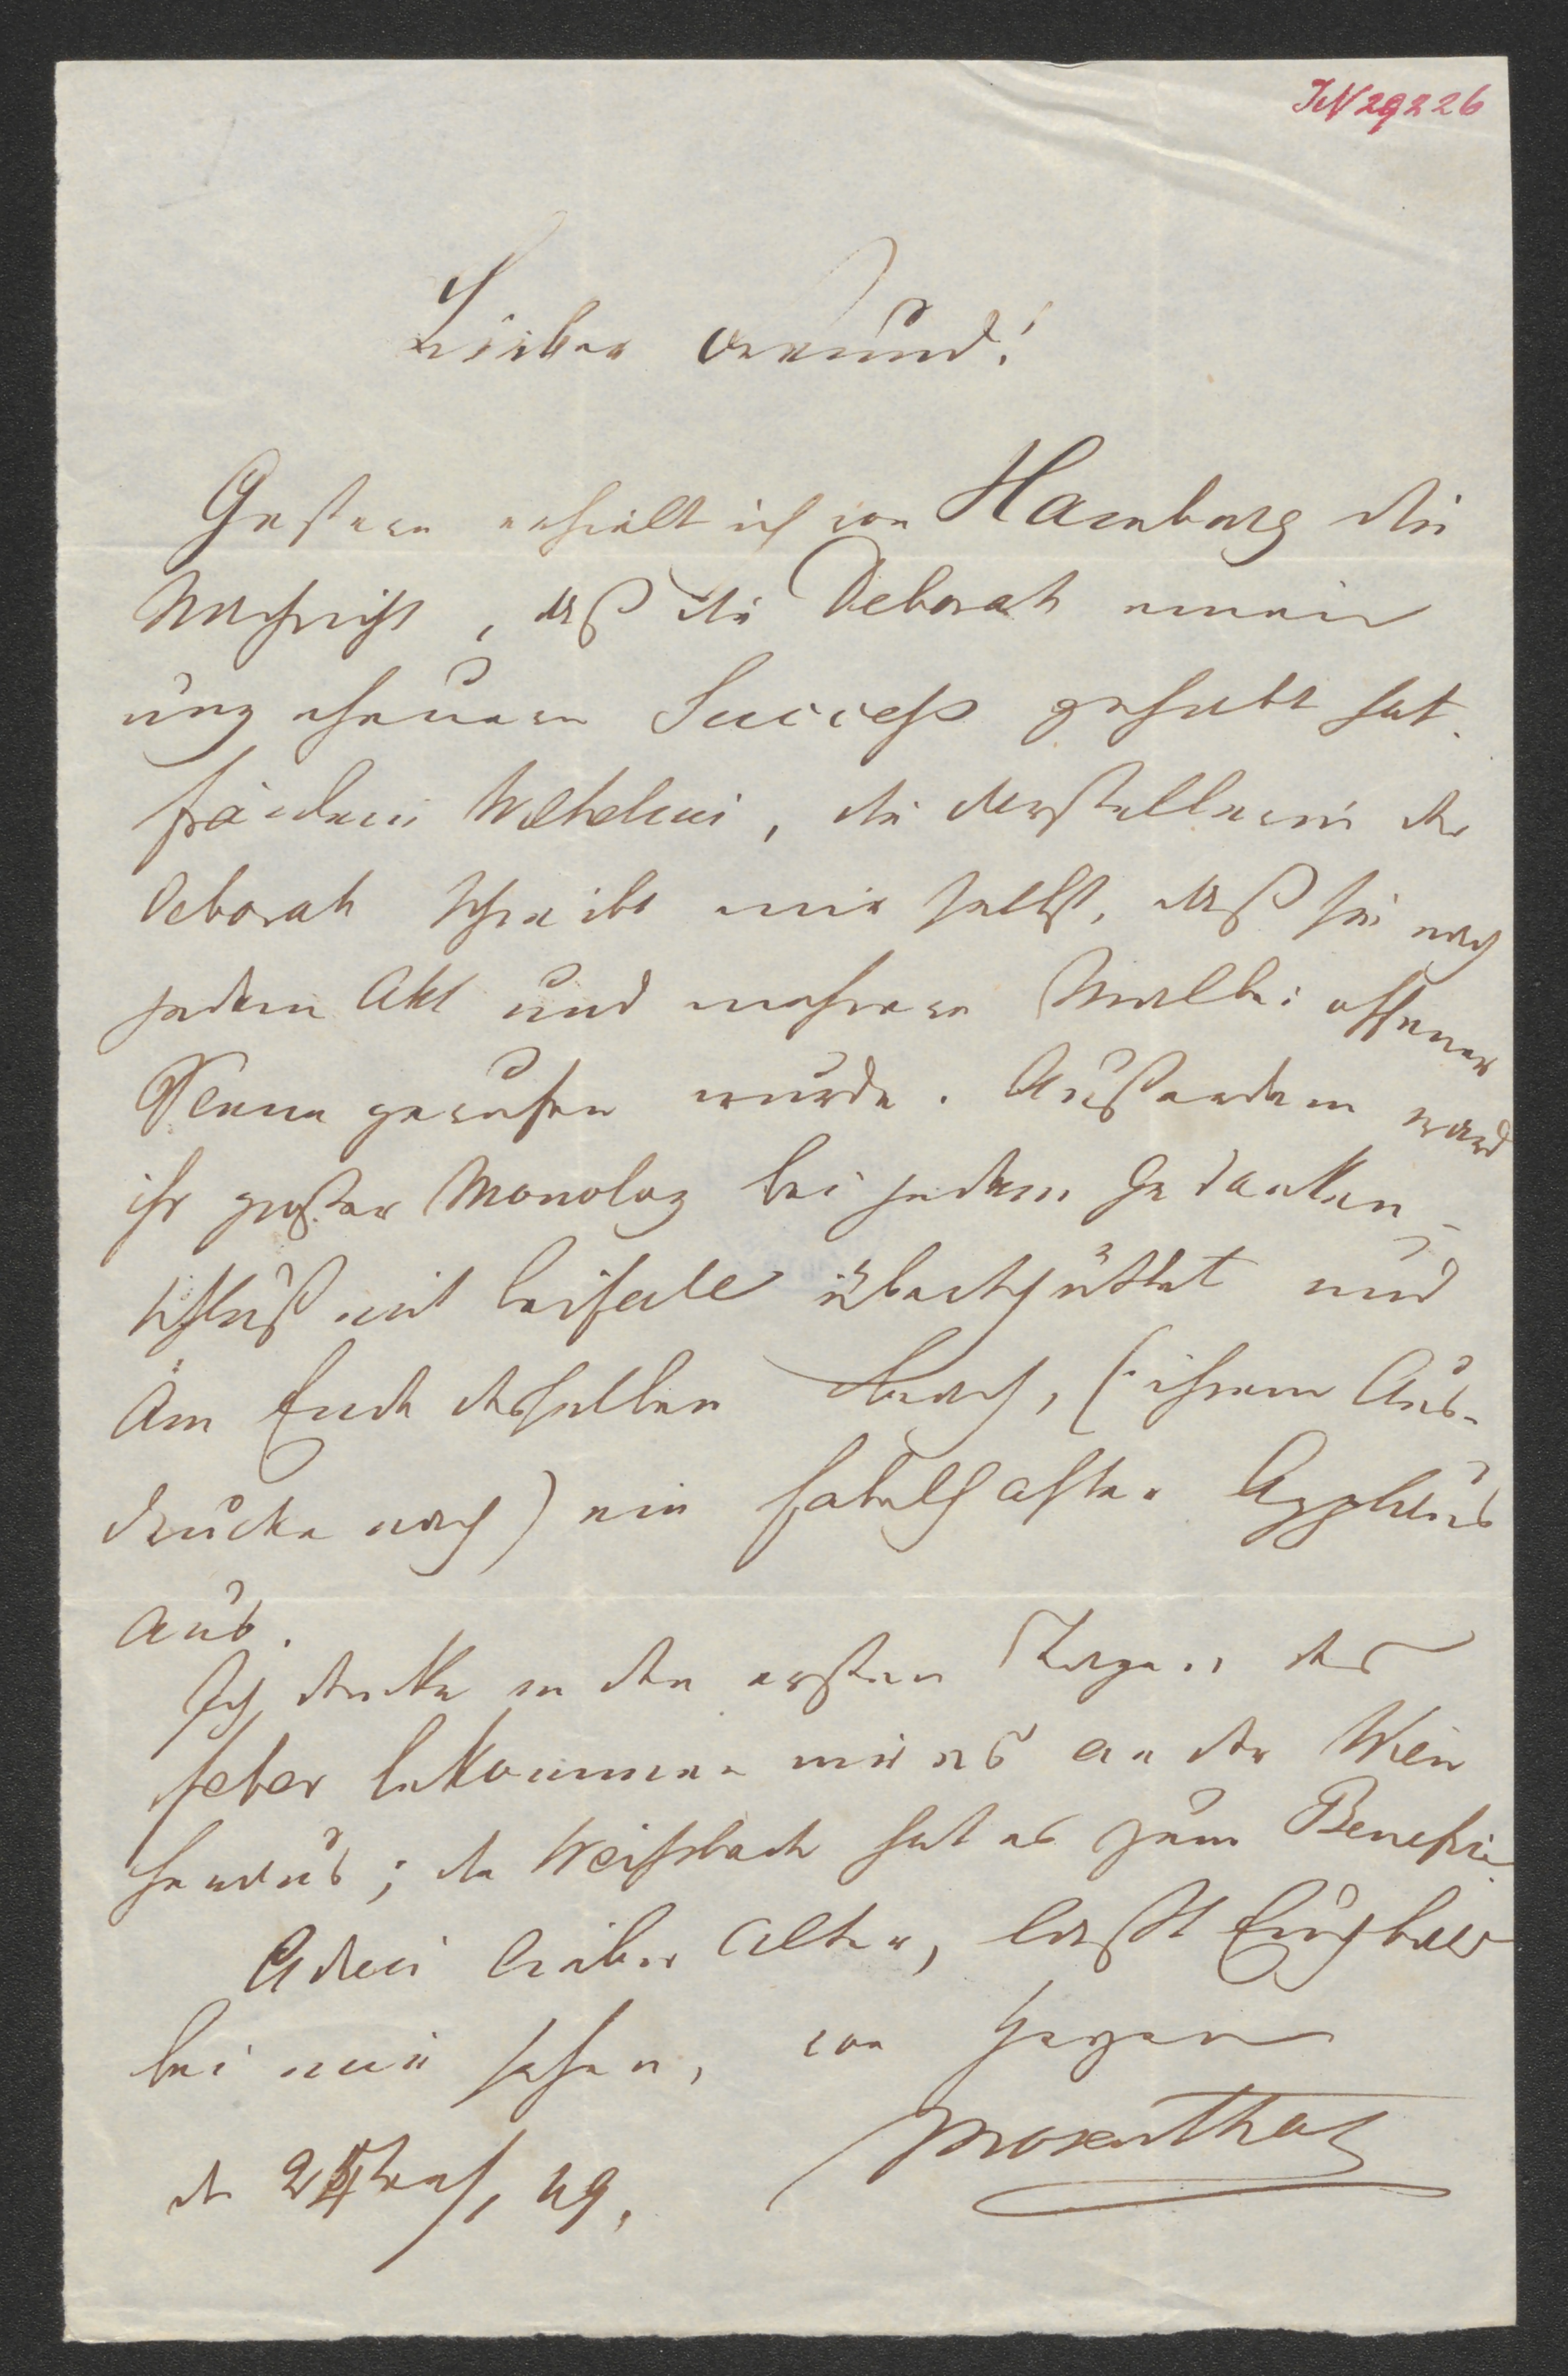 IN 29226
Lieber Freund!
Gestern erhielt ich von Hamburg die
Nachricht, daß die Deborah einen
ungeheuren Success gehabt hat.
Fräulein Wilhelmi, die Darstellerin der
Deborah schreibt mir selbst, daß sie nach
jedem Akt und mehrere Mal bei offener
Scene gerufen wurde. Außerdem ward
ihr großer Monolog bei jedem Gedanken-
schluß mit Beifall überschüttet und
Am Ende desselben brach, (ihrem Aus-
drucke nach) ein fabelhafter Applaus
aus.
Ich denke in den ersten Tagen des
Feber bekommen wir es an der Wien
heraus; die Weißbach hat es zum Benefice
Adieu lieber Alter, laßt Euch bald
bei mir sehen,
Mosenthal
49.